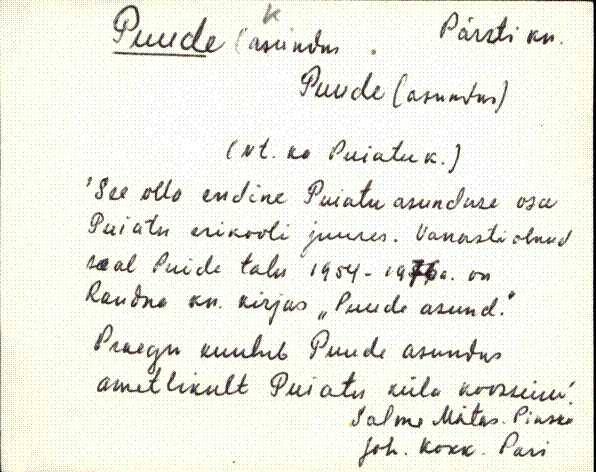 k
Puude (asundus . Pärsti kn.
Puude (asundus)
(vt. ka Puiatu k.)
'See olla endine Puiatu asunduse osa
Puiatu erikooli juures. Vanasti olnud
seal Puide talu 1954 - 1976 a. on
Raudna kn. kirjas „Puude asund."
Praegu kuulub Puude asundus
ametlikult Puiatu küla koosseisu'.
Salme Mätas.
Joh. Kokk. Pari